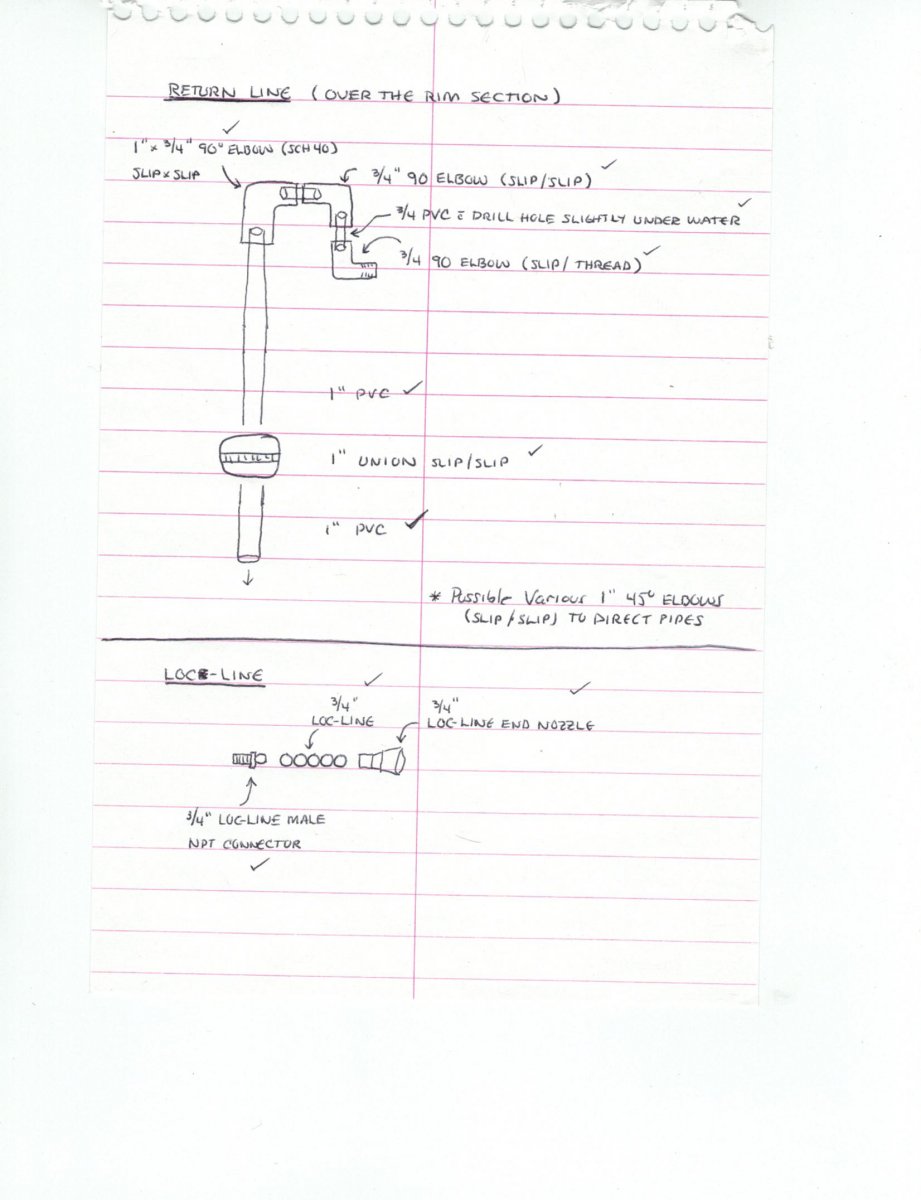 RETURN LINE (OVER THE RIM SECTION)
1" x 3/4" 90° ELBOW (SCH 40)
SLIP x SLIP
3/4" 90 ELBOW (SLIP/SLIP)
3/4 PVC c̄ DRILL HOLE SLIGHTLY UNDER WATER
3/4 90 ELBOW (SLIP/THREAD)
1" PVC
1" UNION SLIP/SLIP
1" PVC
* Possible Various 1" 45° ELBOWS
(SLIP/SLIP) TO DIRECT PIPES
LOC-LINE
3/4"
LOC-LINE
3/4"
LOC-LINE END NOZZLE
3/4" LOC-LINE MALE
NPT CONNECTOR